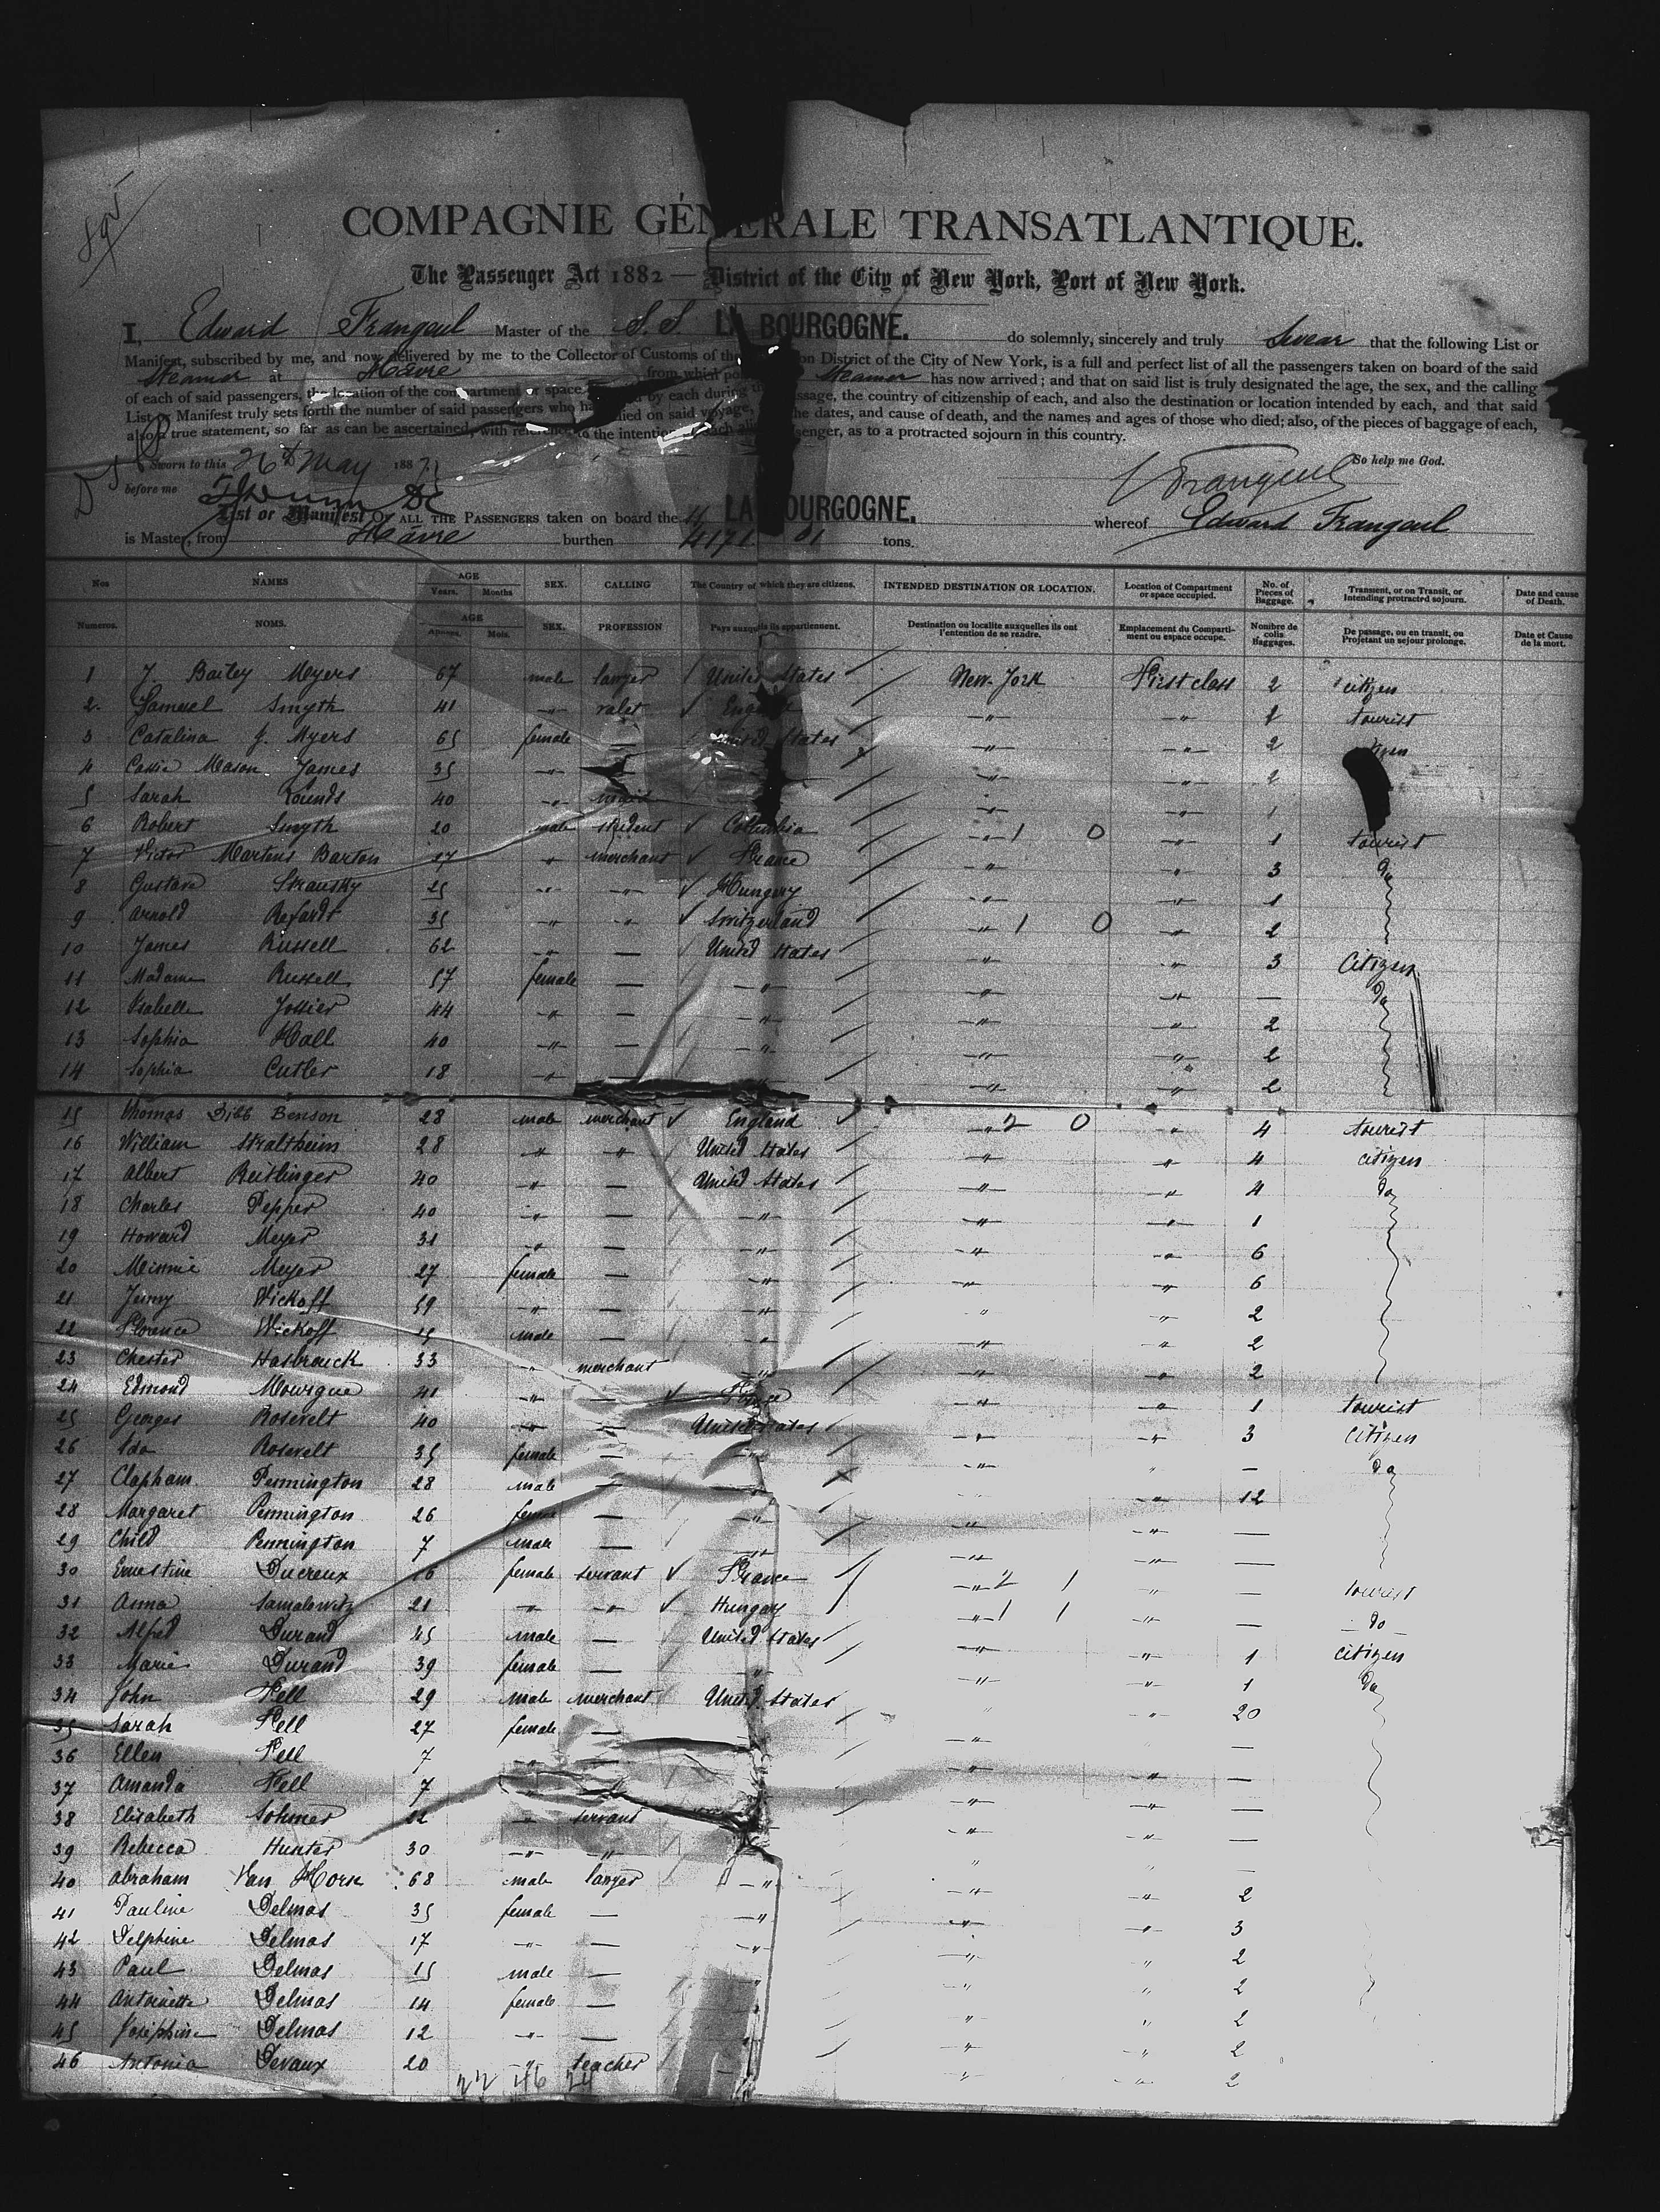 COMPAGNIE GÉNÉRALE TRANSATLANTIQUE.
The Passenger Act 1882 — District of the City of New York, Port of New York.
I, Edward Frangeul Master of the S.S. LA BOURGOGNE. do solemnly, sincerely and truly swear that the following List or
Manifest, subscribed by me, and now delivered by me to the Collector of Customs of the on District of the City of New York, is a full and perfect list of all the passengers taken on board of the said
Steamer at Havre from which Steamer has now arrived; and that on said list is truly designated the age, the sex, and the calling
of each of said passengers, the location of the compartment or space by each during ssage, the country of citizenship of each, and also the destination or location intended by each, and that said
List or Manifest truly sets forth the number of said passengers who ha died on said voyage, the dates, and cause of death, and the names and ages of those who died; also, of the pieces of baggage of each,
also a true statement, so far as can be ascertained, with reference to the intention each senger, as to a protracted sojourn in this country.
Sworn to this 26th May 1887 So help me God.
before me Frangeul
List or Manifest OF ALL THE PASSENGERS taken on board the LA BOURGOGNE. whereof Edward Frangeul
is Master, from Havre burthen 4171 tons.
Nos NAMES AGE Years. Months SEX. CALLING The Country of which they are citizens. INTENDED DESTINATION OR LOCATION. Location of Compartment or space occupied. No. of Pieces of Baggage. Transient, or on Transit, or Intending protracted sojourn. Date and cause of Death.
Numeros. NOMS. AGE Annees. Mois. SEX. PROFESSION Pays auxquels ils appartiennent. Destination ou localite auxquelles ils ont l'entention de se rendre. Emplacement du Comparti-ment ou espace occupe. Nombre de colis Baggages. De passage, ou en transit, ou Projetant un sejour prolonge. Date et Cause de la mort.
1 J. Bailey Meyers 67 male lawyer United States New-York First class 2 citizen
2 Samuel Smyth 41 -"- valet -"- -"- 2 tourist
3 Catalina J. Myers 65 female — United States -"- -"- 2
4 Cassie Mason James 35 -"- -"- -"- 2
5 Sarah Rounds 40 -"- maid -"- -"- 1
6 Robert Smyth 20 male student Columbia -"- 1 0 -"- 1 tourist
7 Victor Martens Barton 27 " merchant France -"- -"- 3 do
8 Gustave Stransky 25 -"- -"- Hungery -"- -"- 1
9 Arnold Refardt 35 -"- -"- Switzerland -"- 1 0 -"- 2
10 James Russell 62 -"- — United States -"- -"- 3 Citizen
11 Madame Russell 57 female — -"- -"- -"- — do
12 Isabelle Jossier 44 -"- — -"- -"- -"- 2
13 Sophia Hall 40 -"- — -"- -"- -"- 2
14 Sophia Cutler 18 -"- -"- -"- 2
15 Thomas Dibb Benson 28 male merchant England -"- 2 0 -"- 4 tourist
16 William Straltheim 28 -"- -"- United States -"- -"- 4 citizen
17 Albert Reitlinger 40 -"- — United States -"- -"- 4 do
18 Charles Pepper 40 -"- — -"- -"- -"- 1
19 Howard Meyer 31 -"- — -"- -"- -"- 6
20 Minnie Meyer 27 female — -"- -"- -"- 6
21 Jenny Wickoff 59 -"- — -"- " -"- 2
22 Florence Wickoff 15 male — -"- -"- -"- 2
23 Chester Hasbrouck 33 " merchant -"- -"- -"- 2
24 Edmond Mourgue 41 -"- — France -"- " 1 tourist
25 Georges Rosevelt 40 -"- — United States -"- -"- 3 Citizen
26 Ida Rosevelt 35 female — -"- -"- " — do
27 Clapham Pennington 28 male — " -"- 12
28 Margaret Pennington 26 female — -"- -"- -"- —
29 Child Pennington 7 male — -"- -"- -"- —
30 Ernestine Ducreux 16 female servant France -"- 2 1 " — tourist
31 Anna Samalowitz 21 -"- -"- Hungay -"- 1 1 -"- — do
32 Alfred Durand 45 male — United States -"- " 1 citizen
33 Marie Durand 39 female — " " " 1 do
34 John Fell 29 male merchant United States " 20
35 Sarah Fell 27 female — -"- " —
36 Ellen Fell 7 -"- -"- -"- —
37 Amanda Fell 7 " -"- -"- —
38 Elisabeth Sohmer 22 -"- servant -"- -"- —
39 Rebecca Hunter 30 -"- " " " —
40 Abraham Van Horn 68 male lawyer -"- -"- -"- 2
41 Pauline Delmas 35 female — -"- -"- -"- 3
42 Delphine Delmas 17 -"- — -"- -"- " 2
43 Paul Delmas 15 male — " " " 2
44 Antoinette Delmas 14 female — " " 2
45 Joséphine Delmas 12 -"- — " -"- " 2
46 Antonia Devaux 20 -"- teacher - " -"- 2
22 46 24